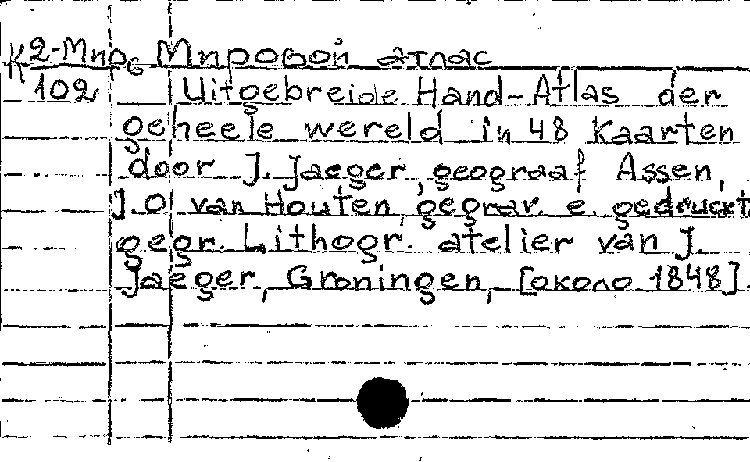 К 2-Мир Мировой атлас
102 Uitgebreide Hand-Atlas der
geheele wereld in 48 Kaarten
door J. Jaeger, geograaf Assen,
J.O. van Houten, gegrav. e. gedruckt
gegr. Lithogr. atelier van J.
Jaeger, Groningen, [около 1848].